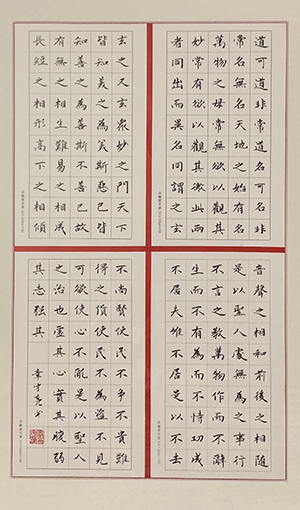 道可道非常道名可名非
常名無名天地之始有名
萬物之母常無欲以觀其
妙常有欲以觀其徼此兩
者同出而異名同謂之玄
玄之又玄眾妙之門天下
皆知美之為美斯惡已皆
知善之為善斯不善已故
有無之相生難易之相成
長短之相形高下之相傾
音聲之相和前後之相隨
是以聖人處無為之事行
不言之教萬物作而不辭
生而不有為而不恃功成
不居夫唯不居是以不去
不尚賢使民不爭不貴難
得之貨使民不為盜不見
可欲使心不亂是以聖人
之治也虛其心實其腹弱
其志强其